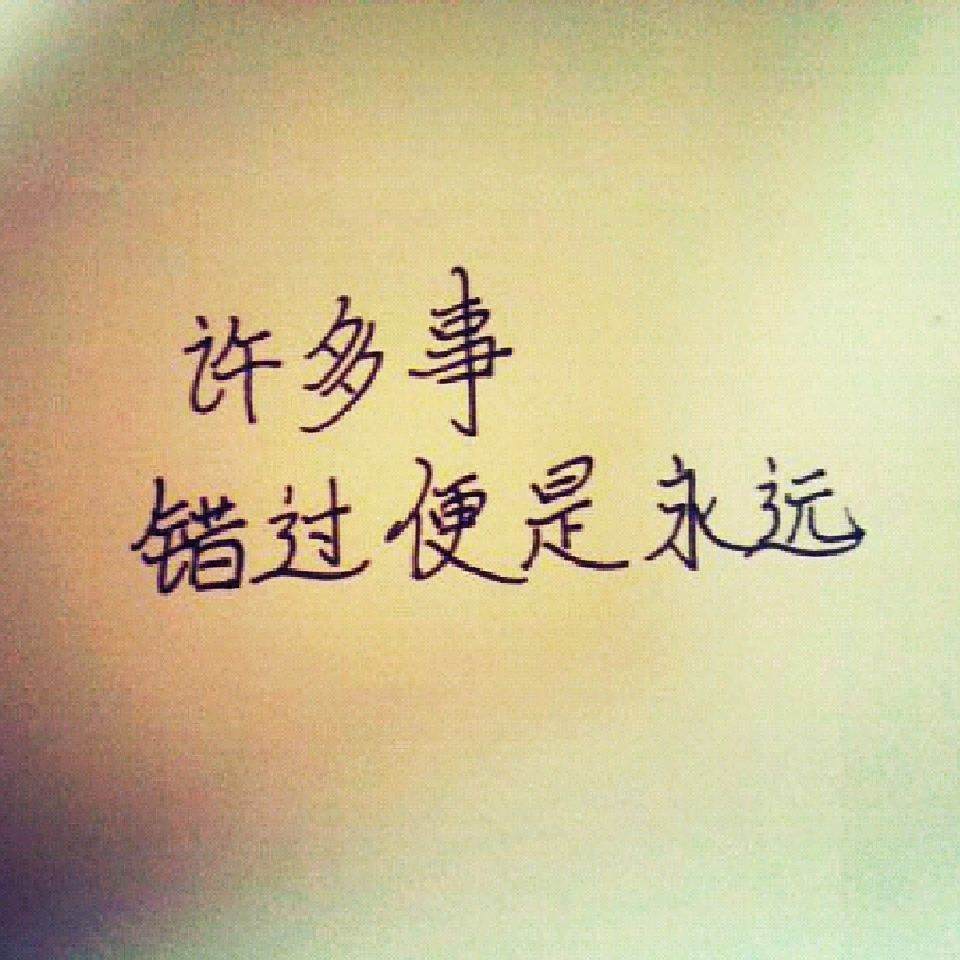 许多事
错过便是永远